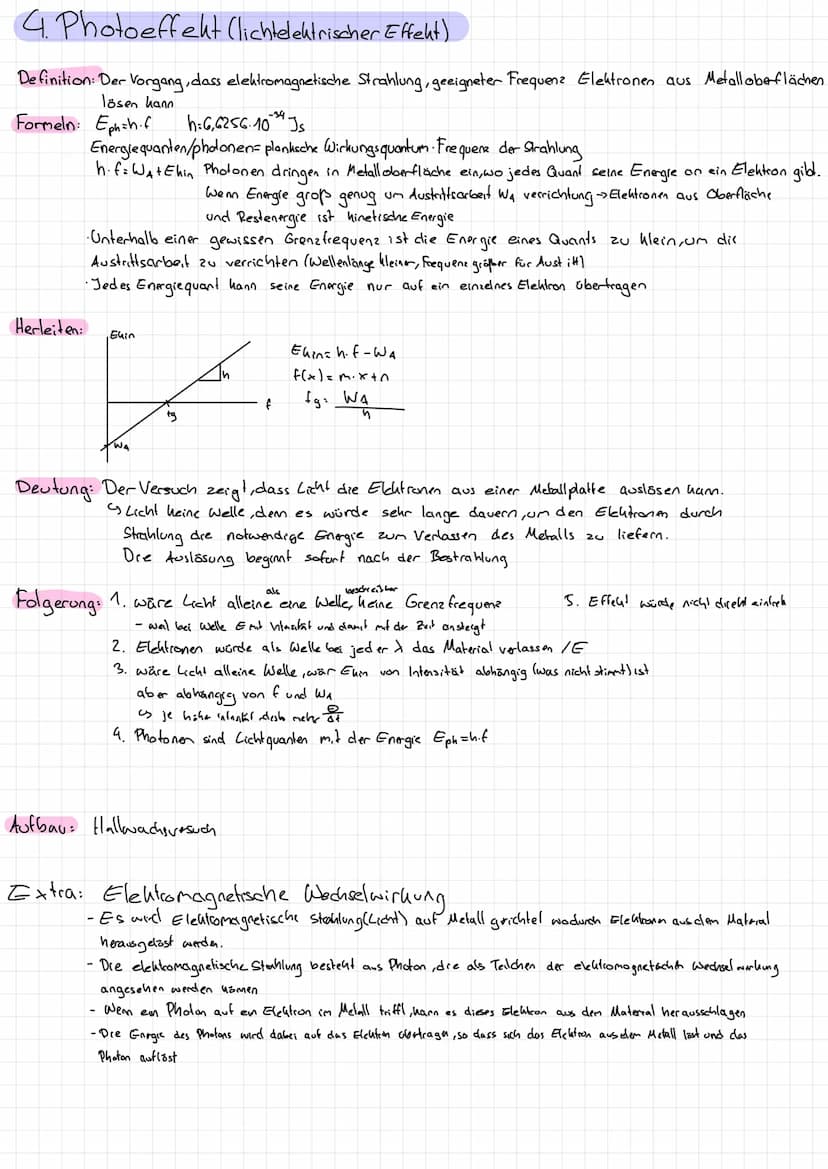 4. Photoeffekt (lichtelektrischer Effekt)
Definition: Der Vorgang, dass elektromagnetische Strahlung, geeigneter Frequenz Elektronen aus Metalloberflächen
lösen kann
Formeln: Eph=h·f h=6,6256·10^-34 Js
Energiequanten/photonen= planksche Wirkungsquantum·Frequenz der Strahlung
h·f=WA+Ekin Photonen dringen in Metalloberfläche ein, wo jedes Quant seine Energie an ein Elektron gibt.
Wenn Energie groß genug um Austrittsarbeit WA verrichtung → Elektronen aus Oberfläche
und Restenergie ist kinetische Energie
·Unterhalb einer gewissen Grenzfrequenz ist die Energie eines Quants zu klein, um die
Austrittsarbeit zu verrichten (Wellenlänge kleiner, Frequenz größer für Austritt)
·Jedes Energiequant kann seine Energie nur auf ein einzelnes Elektron übertragen
Herleiten:
Ekin
h
f
fg
WA
Ekin= h·f-WA
f(x)= m·x+n
fg= WA/h
Deutung: Der Versuch zeigt, dass Licht die Elektronen aus einer Metallplatte auslösen kann.
↳ Licht keine Welle, denn es würde sehr lange dauern, um den Elektronen durch
Strahlung die notwendige Energie zum Verlassen des Metalls zu liefern.
Die Auslösung beginnt sofort nach der Bestrahlung
Folgerung: 1. wäre Licht alleine als eine Welle beschreibbar, keine Grenzfrequenz
- weil bei Welle E mit Intensität und damit mit der Zeit ansteigt
5. Effekt würde nicht direkt
2. Elektronen würde als Welle bei jeder λ das Material verlassen /E
3. wäre Licht alleine Welle, wär Ekin von Intensität abhängig (was nicht stimmt) ist
aber abhängig von f und WA
↳ je höher Intensität desto mehr
4. Photonen sind Lichtquanten mit der Energie Eph=h·f
Aufbau: Hallwachsversuch
Extra: Elektromagnetische Wechselwirkung
- Es wird Elektromagnetische Strahlung(Licht) auf Metall gerichtet wodurch Elektronen aus dem Material
herausgelöst werden.
- Die elektromagnetische Strahlung besteht aus Photon, die als Teilchen der elektromagnetischen Wechselwirkung
angesehen werden können
- Wenn ein Photon auf ein Elektron im Metall trifft, kann es dieses Elektron aus dem Material herausschlagen
- Die Energie des Photons wird dabei auf das Elektron übertragen, so dass sich das Elektron aus dem Metall löst und das
Photon auflöst